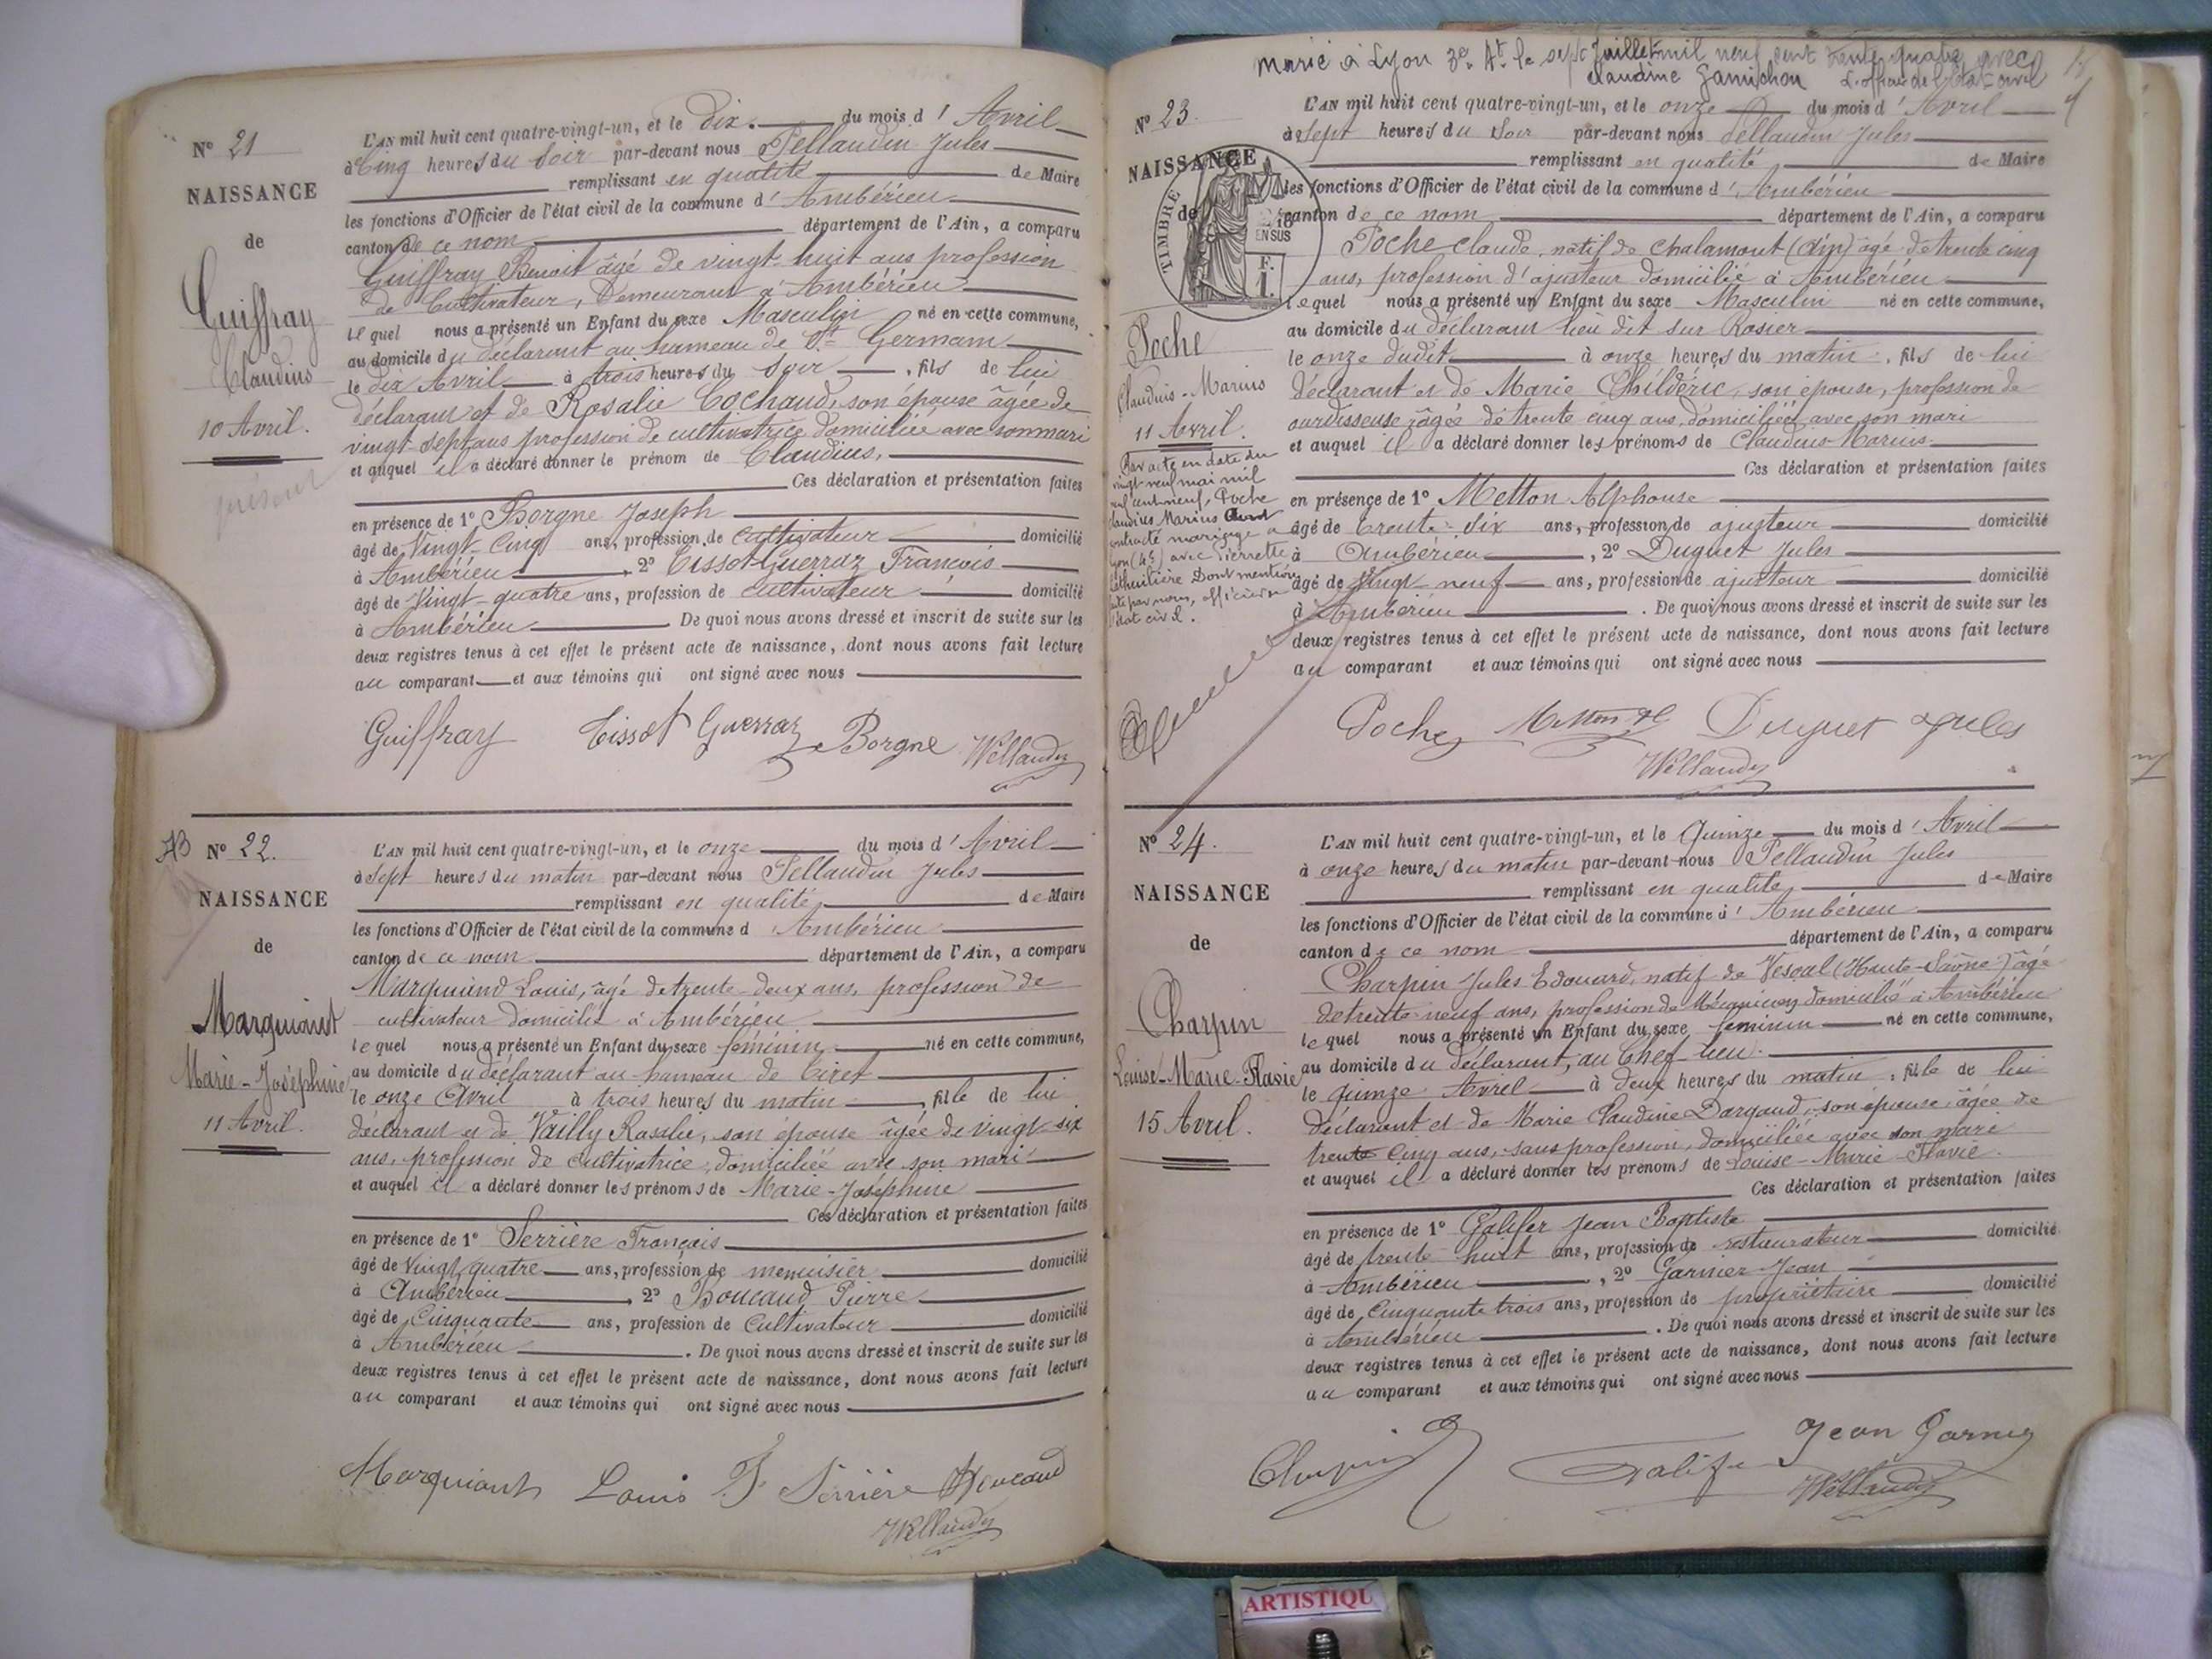 N° 21
NAISSANCE
de
Guiffray
Claudius
10 Avril.
présent
L'AN mil huit cent quatre-vingt-un, et le dix. du mois d' Avril
à Cinq heures du Soir par-devant nous Pellaudin Jules
remplissant en qualité de Maire
les fonctions d'Officier de l'état civil de la commune d' Ambérieu
canton de ce nom département de l'Ain, a comparu
Guiffray Benoit âgé de vingt-huit ans profession
de Cultivateur, Demeurant à Ambérieu
lequel nous a présenté un Enfant du sexe Masculin né en cette commune,
au domicile du déclarant au hameau de St Germain
le dix Avril à trois heures du Soir, fils de lui
déclarant et de Rosalie Cochaud, son épouse âgée de
vingt-sept ans profession de cultivatrice domiciliée avec son mari
et auquel il a déclaré donner le prénom de Claudius,
Ces déclaration et présentation faites
en présence de 1° Borgne Joseph
âgé de Vingt-Cinq ans, profession de Cultivateur domicilié
à Ambérieu, 2° Tissot-Guerraz François
âgé de Vingt-quatre ans, profession de cultivateur domicilié
à Ambérieu. De quoi nous avons dressé et inscrit de suite sur les
deux registres tenus à cet effet le présent acte de naissance, dont nous avons fait lecture
au comparant et aux témoins qui ont signé avec nous
Guiffray Tissot Guerraz Borgne Pellaudin
N° 22.
NAISSANCE
de
Marguiant
Marie-Joséphine
11 Avril.
L'AN mil huit cent quatre-vingt-un, et le onze du mois d' Avril
à Sept heures du matin par-devant nous Pellaudin Jules
remplissant en qualité de Maire
les fonctions d'Officier de l'état civil de la commune d Ambérieu
canton de ce nom département de l'Ain, a comparu
Louis, âgé de trente-deux ans, profession de
cultivateur domicilié à Ambérieu
lequel nous a présenté un Enfant du sexe féminin né en cette commune,
au domicile du déclarant au hameau de Tiret
le onze Avril à trois heures du matin, fille de lui
déclarant et de Vailly Rosalie, son épouse âgée de vingt-six
ans, profession de cultivatrice, domiciliée avec son mari
et auquel il a déclaré donner les prénoms de Marie-Joséphine
Ces déclaration et présentation faites
en présence de 1° Serrière François
âgé de Vingt quatre ans, profession de menuisier domicilié
à Ambérieu, 2° Boucaud Pierre
âgé de Cinquante ans, profession de Cultivateur domicilié
à Ambérieu. De quoi nous avons dressé et inscrit de suite sur les
deux registres tenus à cet effet le présent acte de naissance, dont nous avons fait lecture
au comparant et aux témoins qui ont signé avec nous
Marguiant Louis F Serrière Boucaud
Pellaudin
Marié à Lyon 3e Art le sept Juillet mil neuf cent trente quatre avec
Claudine Gamichon L'officier de l'état-civil
N° 23.
NAISSANCE
de
TIMBRE
EN SUS
F.
1.
Poche
Claudius-Marius
11 Avril.
Par acte en date du
vingt neuf mai mil
neuf cent neuf, Poche
Claudius Marius
contracté mariage à
Lyon (4e) avec Pierrette
Lathuilière Dont mention
faite par nous, officier de
l'état civil.
L'AN mil huit cent quatre-vingt-un, et le onze du mois d' Avril
à Sept heures du Soir par-devant nous Pellaudin Jules
remplissant en qualité de Maire
les fonctions d'Officier de l'état civil de la commune d' Ambérieu
canton de ce nom département de l'Ain, a comparu
Poche Claude, natif de Chalamont (Ain) âgé de trente cinq
ans, profession d'ajusteur domicilié à Ambérieu
lequel nous a présenté un Enfant du sexe Masculin né en cette commune,
au domicile du déclarant lieu dit sur Rosier
le onze dudit à onze heures du matin, fils de lui
déclarant et de Marie Childéric, son épouse, profession de
ourdisseuse âgée de trente cinq ans, domiciliée avec son mari
et auquel il a déclaré donner les prénoms de Claudius-Marius
Ces déclaration et présentation faites
en présence de 1° Metton Alphonse
âgé de trente-six ans, profession de ajusteur domicilié
à Ambérieu, 2° Duguet Jules
âgé de Vingt-neuf ans, profession de ajusteur domicilié
à Ambérieu. De quoi nous avons dressé et inscrit de suite sur les
deux registres tenus à cet effet le présent acte de naissance, dont nous avons fait lecture
au comparant et aux témoins qui ont signé avec nous
Poche Metton Al Duguet Jules
Pellaudin
N° 24.
NAISSANCE
de
Charpin
Louise-Marie-Flavie
15 Avril.
L'AN mil huit cent quatre-vingt-un, et le Quinze du mois d' Avril
à onze heures du matin par-devant nous Pellaudin Jules
remplissant en qualité de Maire
les fonctions d'Officier de l'état civil de la commune d' Ambérieu
canton de ce nom département de l'Ain, a comparu
Charpin Jules Edouard, natif de Vesoul (Haute-Saône) âgé
de trente-neuf ans, profession de Mécanicien domicilié à Ambérieu
lequel nous a présenté un Enfant du sexe féminin né en cette commune,
au domicile du déclarant, au Chef-lieu.
le quinze Avril à deux heures du matin, fille de lui
déclarant et de Marie Claudine Dargaud, son épouse, âgée de
trente cinq ans, sans profession, domiciliée avec son mari
et auquel il a déclaré donner les prénoms de Louise-Marie-Flavie.
Ces déclaration et présentation faites
en présence de 1° Galifer Jean Baptiste
âgé de trente-huit ans, profession de restaurateur domicilié
à Ambérieu, 2° Garnier Jean
âgé de Cinquante trois ans, profession de propriétaire domicilié
à Ambérieu. De quoi nous avons dressé et inscrit de suite sur les
deux registres tenus à cet effet le présent acte de naissance, dont nous avons fait lecture
au comparant et aux témoins qui ont signé avec nous
Charpin Galifer Jean Garnier
Pellaudin
ARTISTIQU